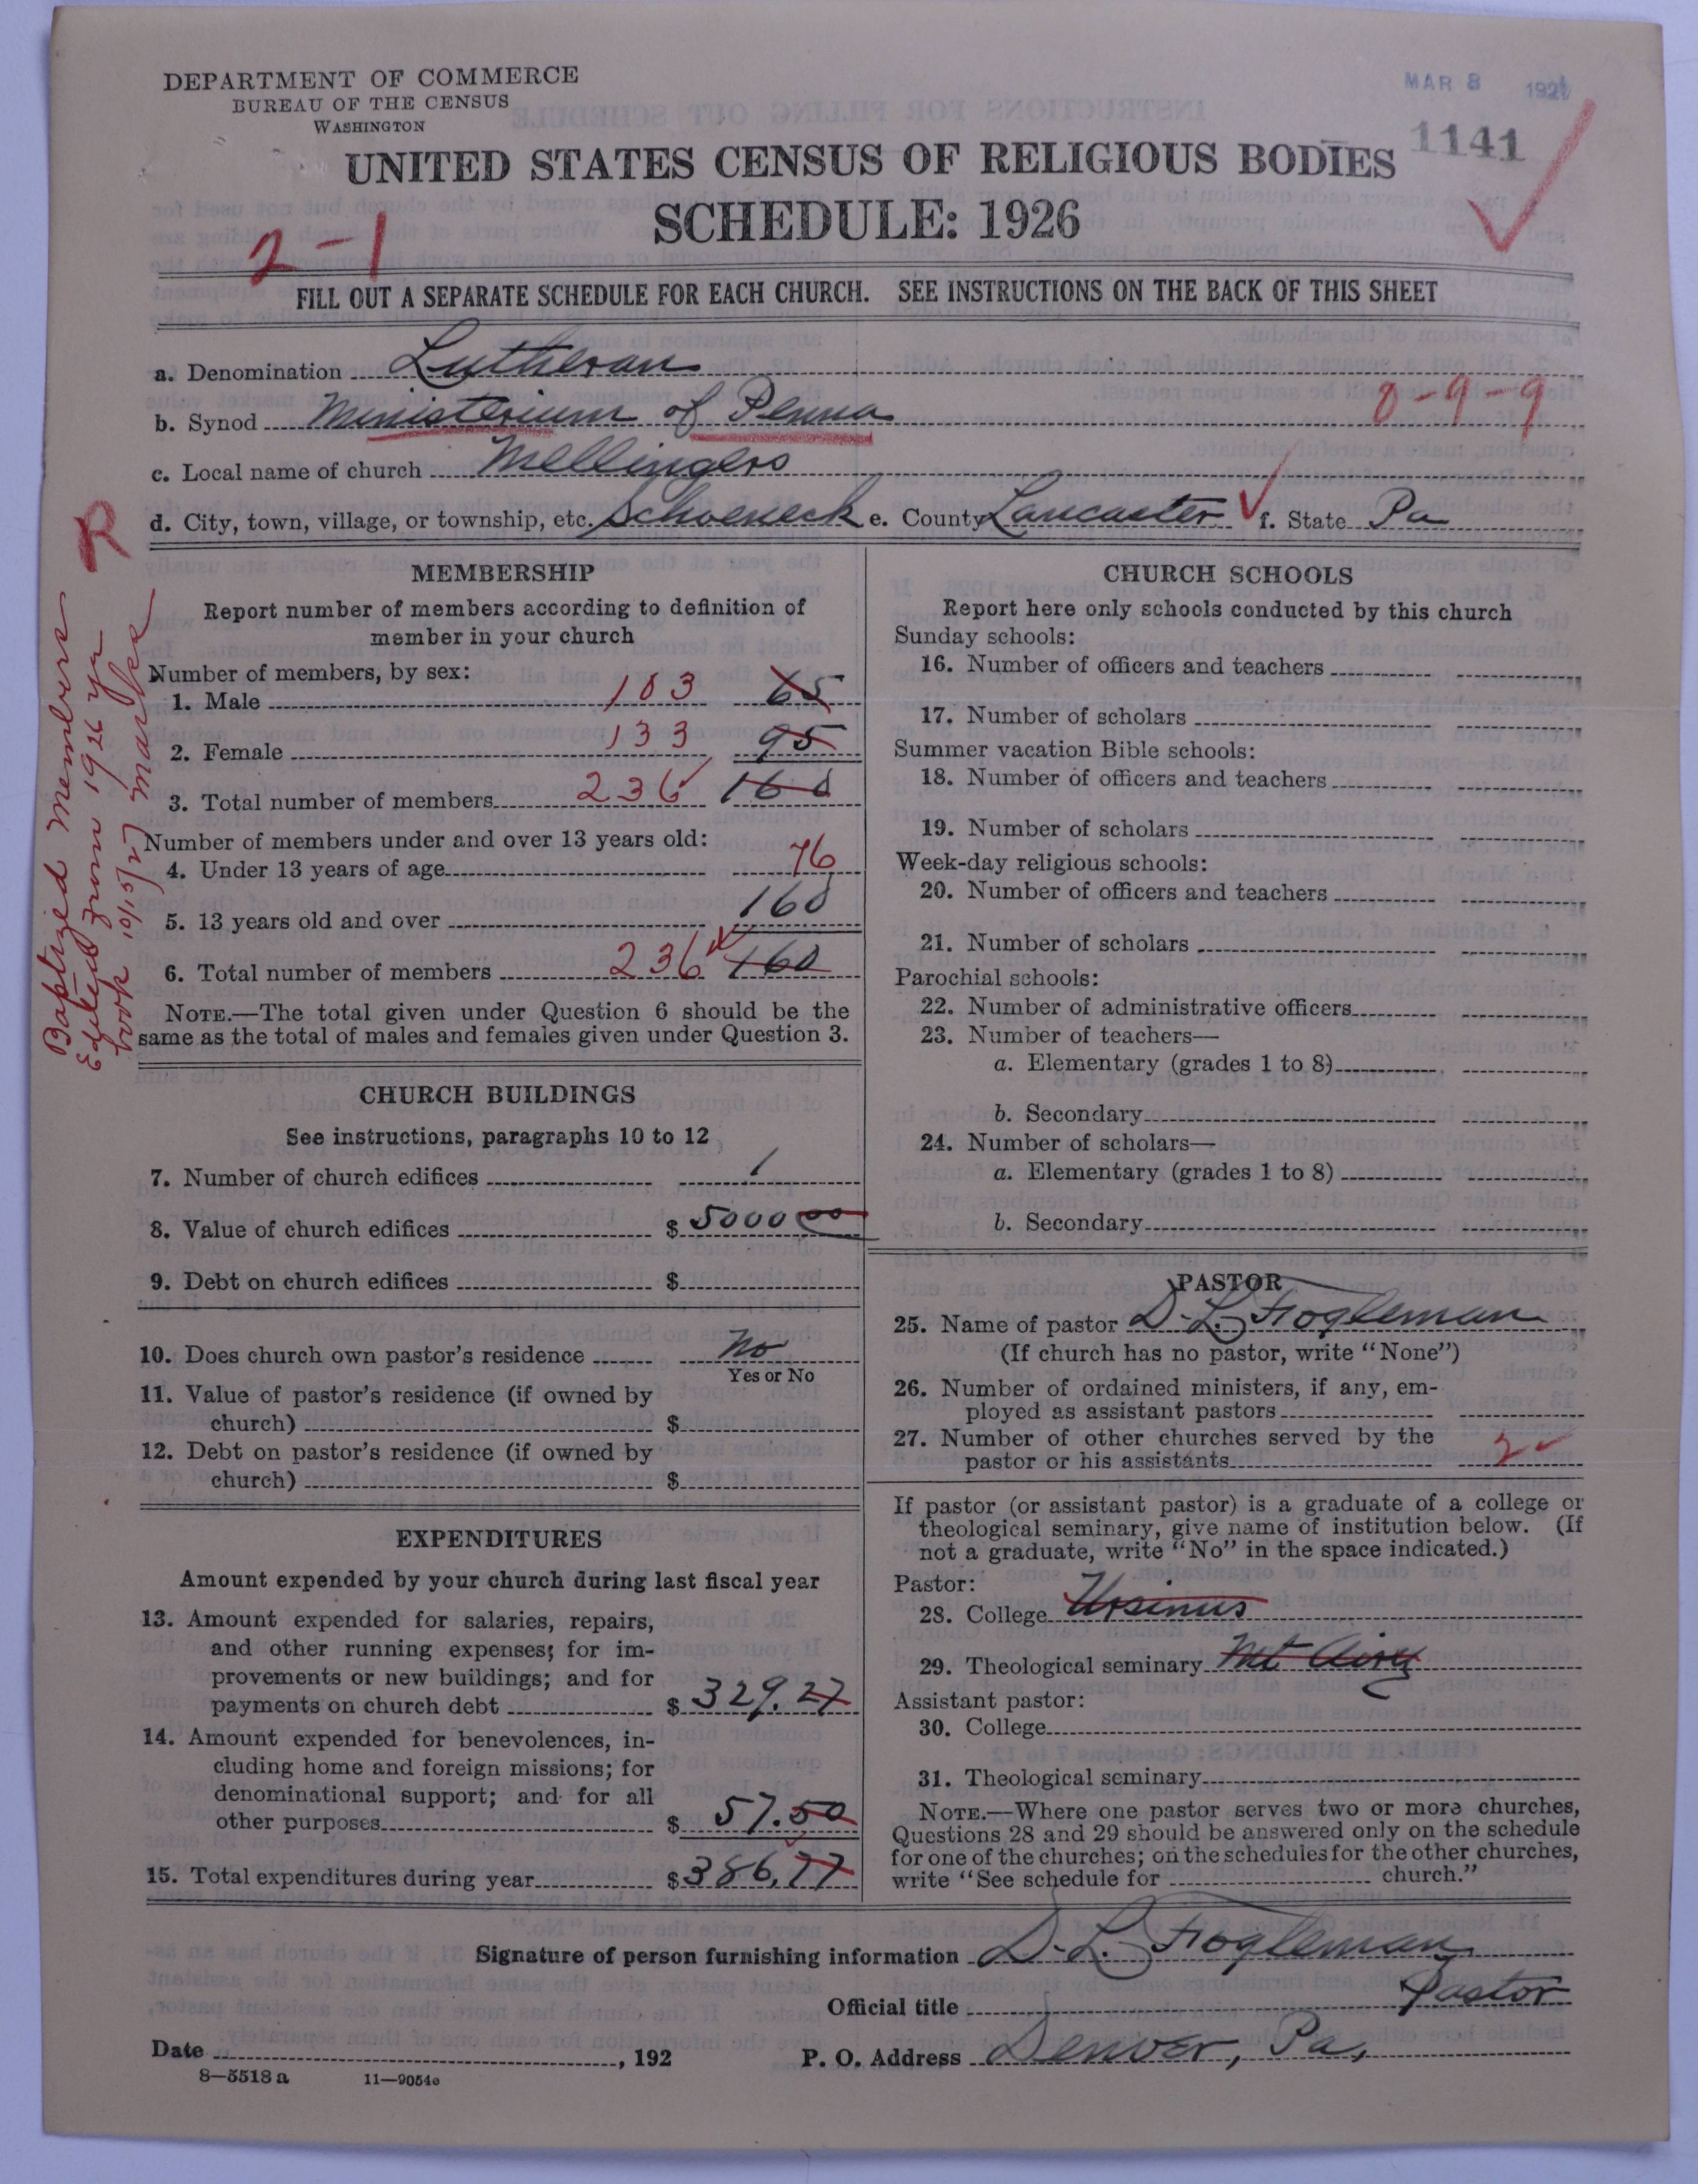 DEPARTMENT OF COMMERCE
BUREAU OF THE CENSUS
WASHINGTON
MAR 8 192
1141
UNITED STATES CENSUS OF RELIGIOUS BODIES
SCHEDULE: 1926
2-1
FILL OUT A SEPARATE SCHEDULE FOR EACH CHURCH. SEE INSTRUCTIONS ON THE BACK OF THIS SHEET
a. Denomination Lutheran
b. Synod Ministerium of Penna 0-9-9
c. Local name of church Mellingers
d. City, town, village, or township, etc. Schoeneck e. County Lancaster f. State Pa
R
Baptized Members
Edited from 1926 yr
book 10/15/27 Marker
MEMBERSHIP
Report number of members according to definition of
member in your church
Number of members, by sex:
1. Male 103 65
2. Female 133 95
3. Total number of members 236 160
Number of members under and over 13 years old:
4. Under 13 years of age 76
5. 13 years old and over 160
6. Total number of members 236 160
NOTE.—The total given under Question 6 should be the
same as the total of males and females given under Question 3.
CHURCH BUILDINGS
See instructions, paragraphs 10 to 12
7. Number of church edifices 1
8. Value of church edifices $ 5000 00
9. Debt on church edifices $
10. Does church own pastor's residence No
Yes or No
11. Value of pastor's residence (if owned by
church) $
12. Debt on pastor's residence (if owned by
church) $
EXPENDITURES
Amount expended by your church during last fiscal year
13. Amount expended for salaries, repairs,
and other running expenses; for im-
provements or new buildings; and for
payments on church debt $ 329.27
14. Amount expended for benevolences, in-
cluding home and foreign missions; for
denominational support; and for all
other purposes $ 57.50
15. Total expenditures during year $ 386,77
CHURCH SCHOOLS
Report here only schools conducted by this church
Sunday schools:
16. Number of officers and teachers
17. Number of scholars
Summer vacation Bible schools:
18. Number of officers and teachers
19. Number of scholars
Week-day religious schools:
20. Number of officers and teachers
21. Number of scholars
Parochial schools:
22. Number of administrative officers
23. Number of teachers—
a. Elementary (grades 1 to 8)
b. Secondary
24. Number of scholars—
a. Elementary (grades 1 to 8)
b. Secondary
PASTOR
25. Name of pastor D. L. Fogleman
(If church has no pastor, write "None")
26. Number of ordained ministers, if any, em-
ployed as assistant pastors
27. Number of other churches served by the
pastor or his assistants 2
If pastor (or assistant pastor) is a graduate of a college or
theological seminary, give name of institution below. (If
not a graduate, write "No" in the space indicated.)
Pastor:
28. College Ursinus
29. Theological seminary Mt Airy
Assistant pastor:
30. College
31. Theological seminary
NOTE.—Where one pastor serves two or more churches,
Questions 28 and 29 should be answered only on the schedule
for one of the churches; on the schedules for the other churches,
write "See schedule for church."
Signature of person furnishing information D. L. Fogleman
Official title Pastor
Date , 192 P. O. Address Denver, Pa,
8—5518 a 11—9054e